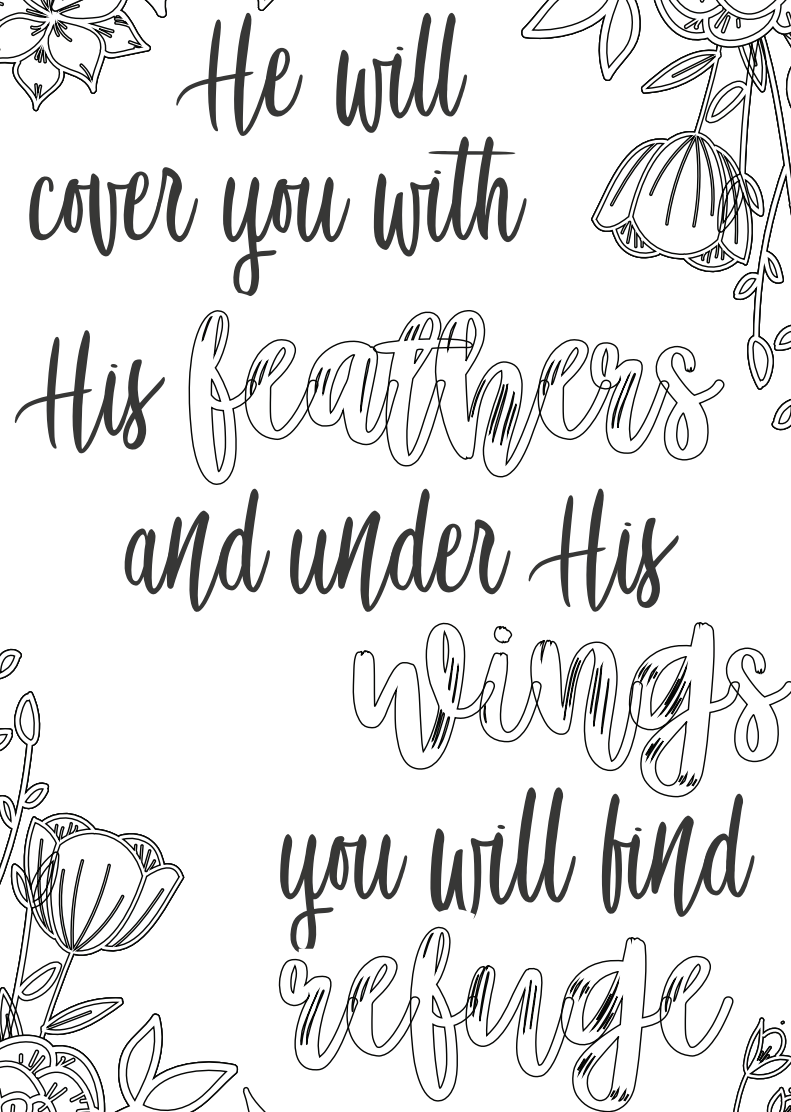 He will
cover you with
His feathers
and under His
wings
you will find
refuge